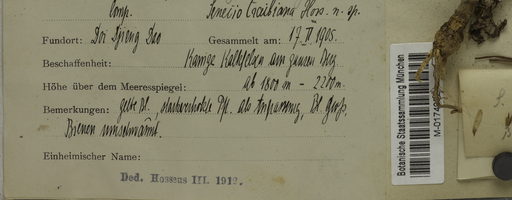 Comp. Senecio Craibiana Hoss. n. sp.
Fundort: Doi Gesammelt am: 17. II 1905.
Beschaffenheit: Kalkfelsen am ganzen Berg.
Höhe über dem Meeresspiegel: ab 1800 m - 2200 m.
Bemerkungen: gelbe Bl., als Anpassung, Bl. groß,
Bienen umschwärmt.
Einheimischer Name:
Ded. Hosseus III. 1912.
Botanische Staatssammlung München